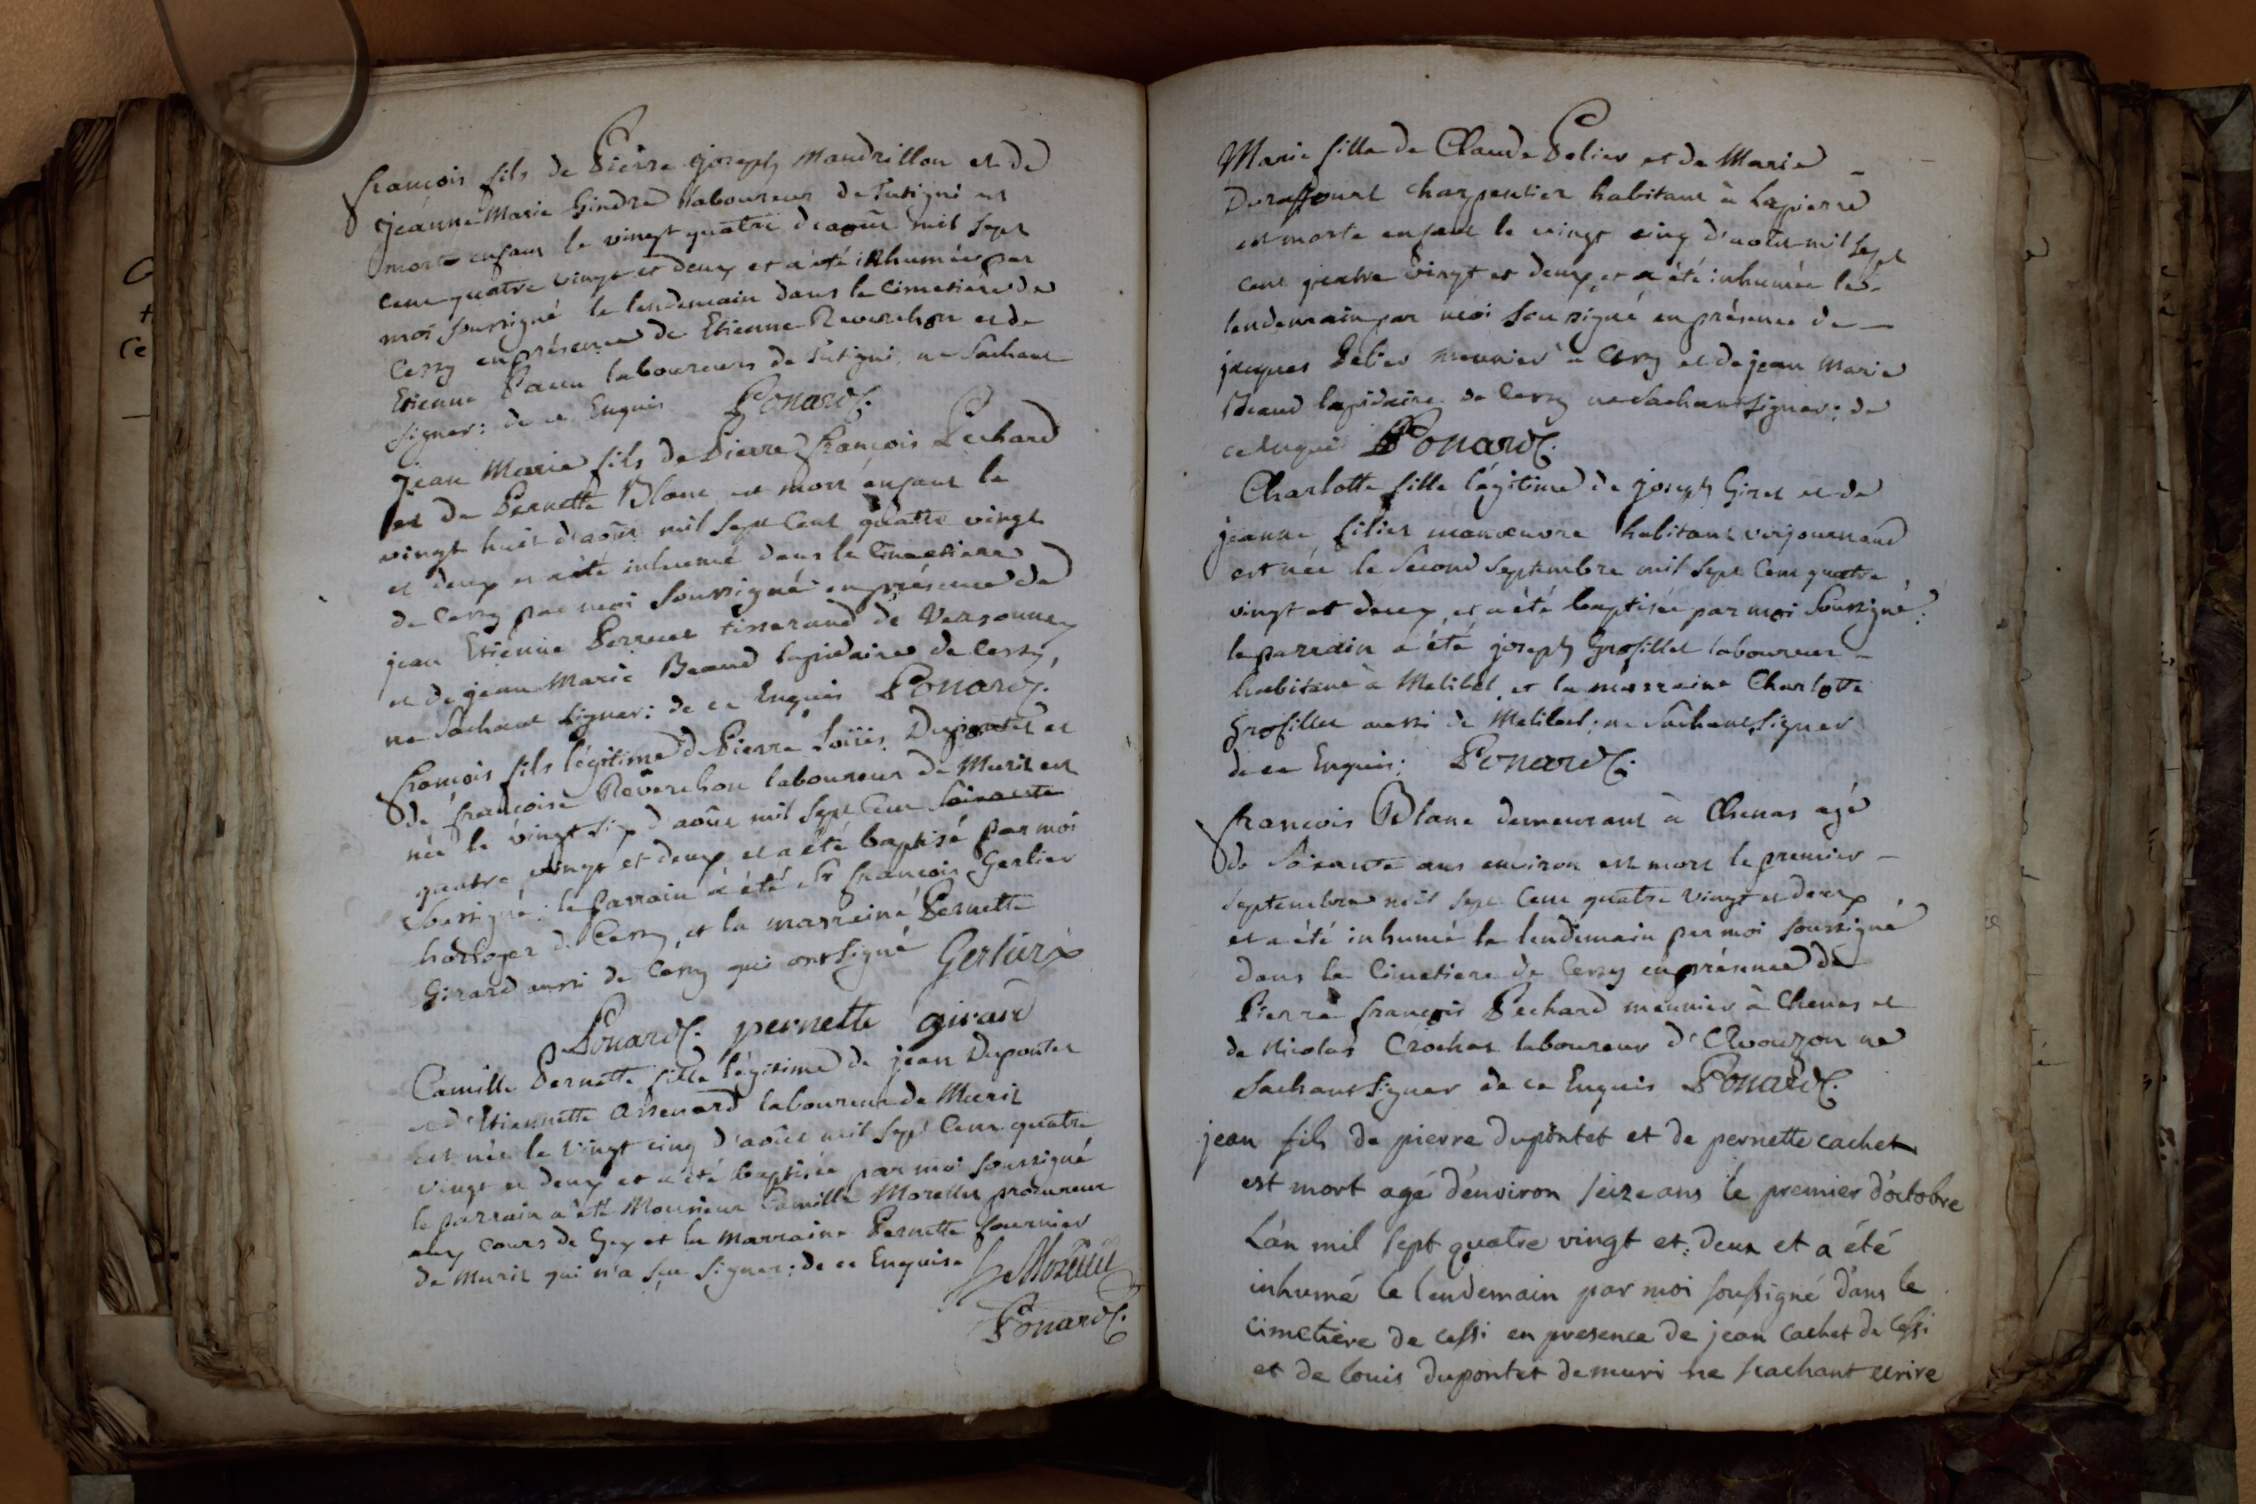 françois fils de Pierre joseph Mandrillon et de
jeanne Marie Gindre laboureur de Tutigni est
morte enfant le vingt quatre d'août mil sept
cent quatre vingt et deux et a été inhumée par
moi soussigné le lendemain dans le cimetiere de
Cessy en présence de Etienne Reverchon et de
Etienne Panu laboureurs de Tutigni, ne sachant
signer: de ce Enquis Ponard
jean Marie fils de Pierre françois Pechard
et de Pernette Blanc est mort enfant le
vingt huit d'août mil sept cent quatre vingt
et deux et a été inhumé dans le Cimetiere
de Cessy par moi soussigné en présence de
jean Etienne Perruet tisserand de Versonnex
et de jean Marie Beaud lapidaire de Cessy,
ne sachant signer: de ce Enquis Ponard
françois fils légitime de Pierre Loüis Dupontet et
de françoise Reverchon laboureur de Muris est
née le vingt six d'août mil sept cent soixante
quatre vingt et deux et a été baptisé par moi
soussigné: le parrain a été Sr françois Gerlier
horloger de Cessy, et la marreine Pernette
Girard aussi de Cessy qui ont signé Gerlier
Ponard pernette girard
Camille Pernette fille légitime de jean Dupontet
et d'Etiennette laboureur de Muris
est née le vingt cinq d'août mil sept cent quatre
vingt et deux et a été baptisée par moi soussigné
le parrain a été Monsieur Camille Morellet procureur
aux cours de Gex et la Marraine Pernette fournier
de Muris qui n'a sçu signer: de ce Enquise Morellet
Ponard
Marie fille de Claude Pelier et de Marie
Duraffourt charpentier habitant à Lapierre
est morte enfant le vingt cinq d'août mil sept
cent quatre vingt et deux, et a été inhumée le
lendemain par moi soussigné en présence de
jacques Pelier meunier à Cessy et de jean Marie
Beaud lapidaire de Cessy ne sachant signer: de
ce Enquis Ponard
Charlotte fille légitime de joseph Giret et de
jeanne filier manœuvre habitant
est née le second septembre mil sept cent quatre
vingt et deux, et a été baptisée par moi soussigné:
le parrain a été joseph Grosfillet laboureur
habitant à Malibel, et la marraine Charlotte
Grosfillet aussi de Malibel; ne sachant signer
de ce Enquis; Ponard
françois Blanc demeurant à Chenas agé
de soixante ans environ est mort le premier
septembre mil sept cent quatre vingt et deux
et a été inhumé le lendemain par moi soussigné
dans le Cimetiere de Cessy en présence de
Pierre françois Pechard meunier à Chenas et
de Nicolas Crochat laboureur d'Avouzon ne
sachant signer de ce Enquis Ponard
jean fils de pierre dupontet et de pernette cachet
est mort agé d'environ seize ans le premier d'octobre
L'an mil sept quatre vingt et deux et a été
inhumé le lendemain par moi soussigné dans le
cimetiere de cessi en presence de jean cachet de Cessi
et de louis dupontet de muri ne scachant ecrire